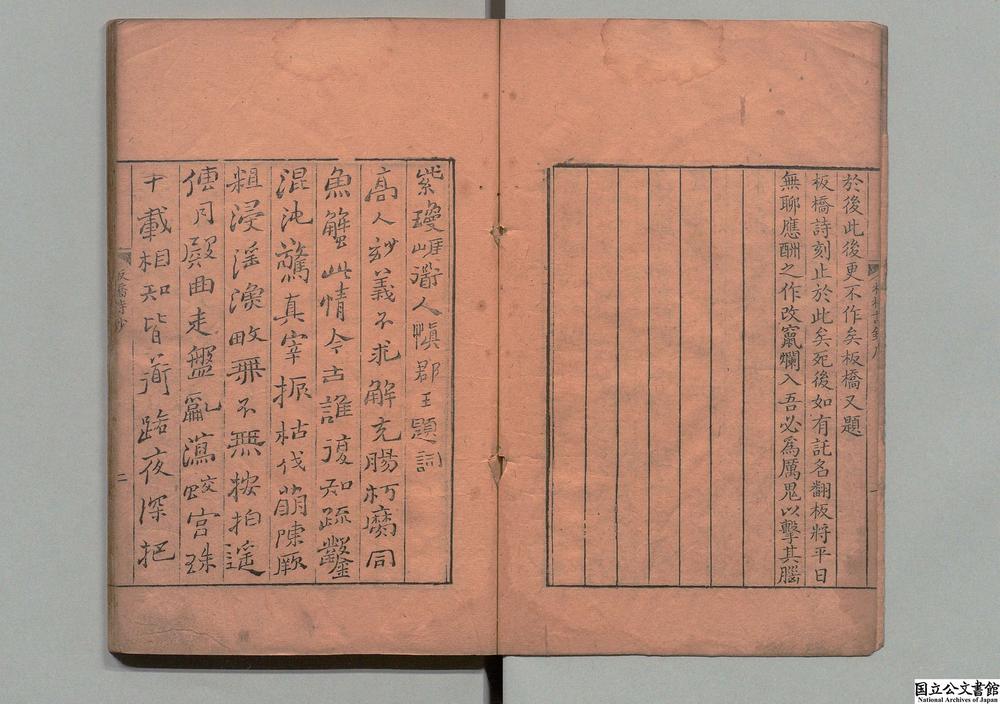 於後此後更不作矣板橋又題
板橋詩刻止於此矣死後如有託名翻板將平日
無聊應酬之作改竄爛入吾必為厲鬼以擊其腦
紫瓊崕衜人慎郡王題詞
高人妙義不求解充腸朽腐同
魚蟹此情今古誰復知疏鑿
混沌驚真宰振枯伐萌陳厥
粗浸淫漁畋無不無按拍遥
傳月殿曲走盤亂瀉蛟宮珠
十載相知皆衜路夜深把
板橋詩鈔
二
国立公文書館
National Archives of Japan